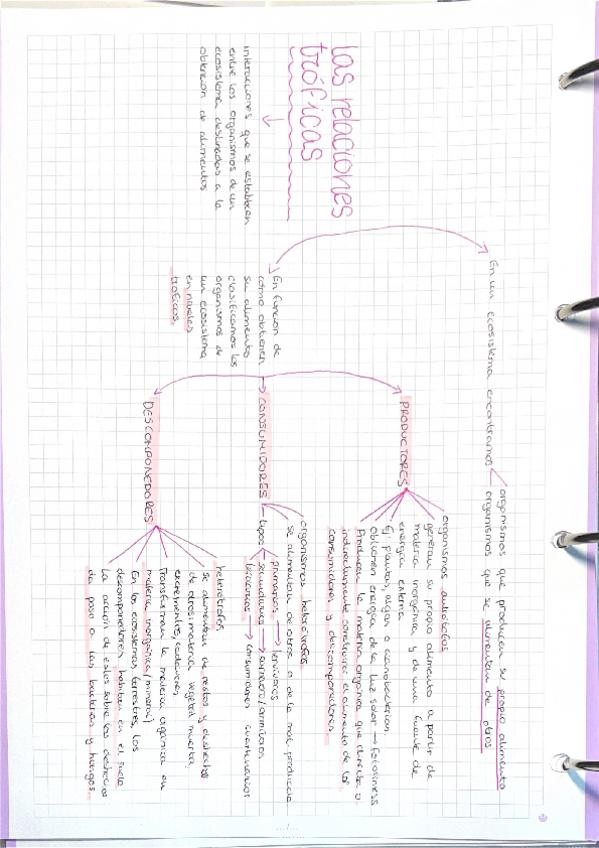 las relaciones
tróficas
interacciones que se establecen
entre los organismos de un
ecosistema destinadas a la
obtención de alimentos
En un ecosistema encontramos
organismos que producen su propio alimento
organismos que se alimentan de otros
En función de
cómo obtienen
su alimento
clasificamos los
organismos de
un ecosistema
en niveles
tróficos.
PRODUCTORES
organismos autótrofos
generan su propio alimento a partir de
materia inorgánica y de una fuente de
energía externa
Ej: plantas, algas o cianobacterias.
Obtienen energía de la luz solar → fotosíntesis
Producen la materia orgánica que directa o
indirectamente constituirá el alimento de los
consumidores y descomponedores
CONSUMIDORES
organismos heterótrofos
se alimentan de otros o de la mat. producida
tipos
primarios → hervívoros
secundarios → carnívoro/omnívoros
terciarios → consumidores cuaternarios
DESCOMPONEDORES
heterótrofos
se alimentan de restos y deshechos
de otros: materia vegetal muerta,
excrementos, cadáveres
Transforman la materia orgánica en
materia inorgánica (mineral)
En los ecosistemas terrestres, los
descomponedores habitan en el suelo
La acción de estos sobre los deshechos
da paso a las bacterias y hongos.